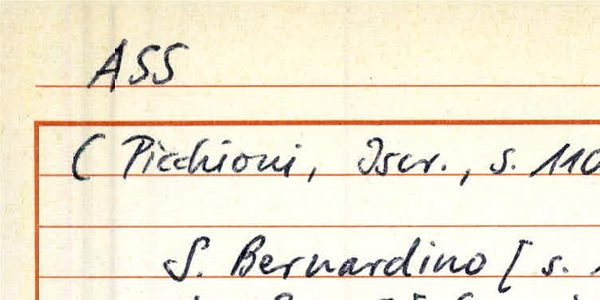 ASS
( Picchioni, Iscr., s. 110
S. Bernardino [ s.